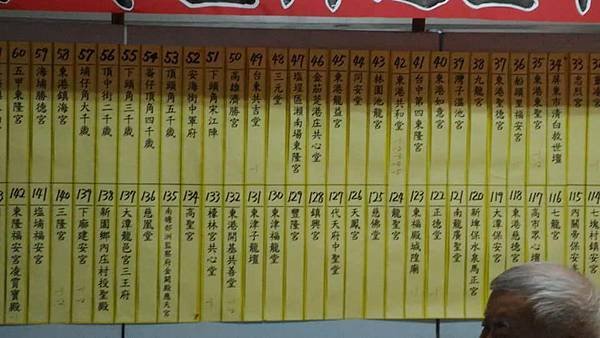 60 五甲東隆宮
59 海勝勝德宮
58 東港鎮海宮
57 埔仔角大千歲
56 頂中街二千歲
55 下頭角三千歲
54 崙仔頂角四千歲
53 頂頭角五千歲
52 安海街中軍府
51 下頭角宋江陣
50 高雄濟勝宮
49 台東共吉堂
48 三元堂
47 塩埕區瀨南場東隆宮
46 金茄萣港庄共心堂
45 東港龍益宮
44 同安堂
43 林園池龍宮
42 東港共和堂
41 台中第四東隆宮
40 東港如意宮
39 灣子溫池宮
38 九龍宮
37 東港聖德宮
36 船頭里福安宮
35 東港東聖宮
34 屏東市清白救世壇
33 忠烈宮
142 東隆福安宮凌霄寶殿
141 塩埔福安宮
140 三隆宮
139 下廍建安宮
138 新園鄉內庄村授聖殿
137 大潭龍宮三王府
136 慈凰堂
135 南瞻部洲監察府金闕殿應天宮
134 高聖宮
133 檺林宮共心堂
132 東港開基共善堂
131 東津子龍壇
130 東津福龍堂
129 豐隆宮
128 鎮興宮
127 代天府中聖堂
126 天鳳宮
125 慈佛堂
124 龍聖宮
123 東福殿城隍廟
122 正德堂
121 南龍廣聖堂
120 新埤保水泉馬正宮
119 大潭保安宮
118 東港慈德宮
117 高市眾心壇
116 七龍宮
115 內關帝保安宮
114 七塊村鎮安宮